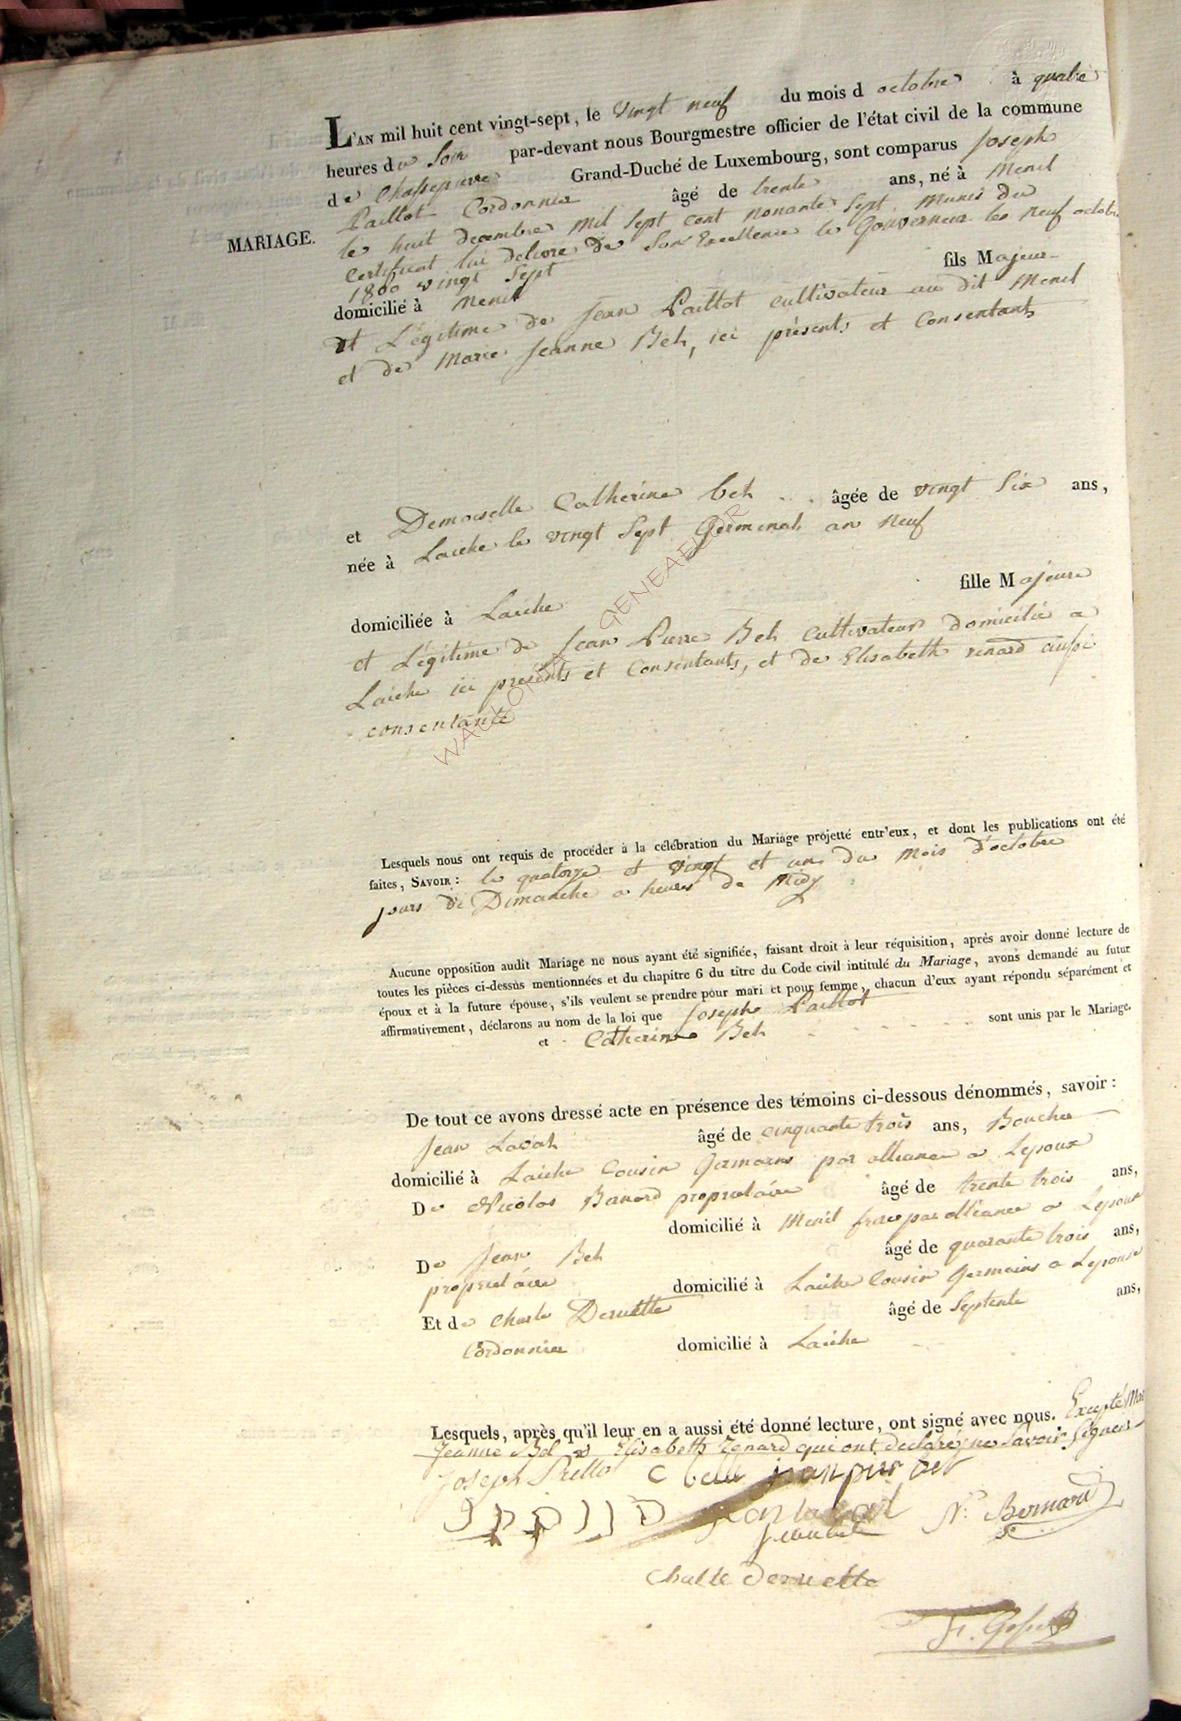 L'AN mil huit cent vingt-sept, le vingt neuf du mois d octobre à quatre
heures du Soir par-devant nous Bourgmestre officier de l'état civil de la commune
de Chassepierre Grand-Duché de Luxembourg, sont comparus Joseph
Paillot Cordonnier âgé de trente ans, né à Menil
MARIAGE.
le huit decembre mil Sept cent nonante Sept munis du
Certificat lui delivré de Son Excellence le Gouverneur le neuf octobre
1800 vingt Sept
domicilié à Menil fils Majeur
et Légitime de Jean Paillot cultivateur au dit Menil
et de Marie Jeanne Beh, ici présents et Consentants
et Demoiselle Catherine beh âgée de vingt Six ans,
née à Laiche le vingt Sept Germinal an neuf
domiciliée à Laiche fille Majeure
et Légitime de Jean Pierre Beh Cultivateur domicilié a
Laiche ici présents et Consentants, et de Elisabeth renard aussi
consentante
Lesquels nous ont requis de procéder à la célébration du Mariage projetté entr'eux, et dont les publications ont été
faites, SAVOIR : le quatorze et vingt et un du mois d'octobre
jours de Dimanche a heures de Midy
Aucune opposition audit Mariage ne nous ayant été signifiée, faisant droit à leur réquisition, après avoir donné lecture de
toutes les pièces ci-dessus mentionnées et du chapitre 6 du titre du Code civil intitulé du Mariage, avons demandé au futur
époux et à la future épouse, s'ils veulent se prendre pour mari et pour femme, chacun d'eux ayant répondu séparément et
affirmativement, déclarons au nom de la loi que Joseph Paillot
et Catherine Beh sont unis par le Mariage.
De tout ce avons dressé acte en présence des témoins ci-dessous dénommés, savoir :
Jean Laval âgé de cinquante trois ans, Boucher
domicilié à Laiche Cousin Germains par alliance a Lepoux
De Nicolas Banard propriétaire âgé de trente trois ans,
domicilié à Menil frere par alliance a Lepoux
De Jean Beh âgé de quarante trois ans,
propriétaire domicilié à Laiche Cousin Germains a Lepouse
Et de Charle Deruette âgé de Septente ans,
Cordonnier domicilié à Laiche
Lesquels, après qu'il leur en a aussi été donné lecture, ont signé avec nous. Excepté Mar
Jeanne Bel et Elisabeth Renard qui ont declaré ne Savoir Signer
Joseph C belle jean pier
N. Bernard
Charle deruette
WALLONIE GENEAELOR